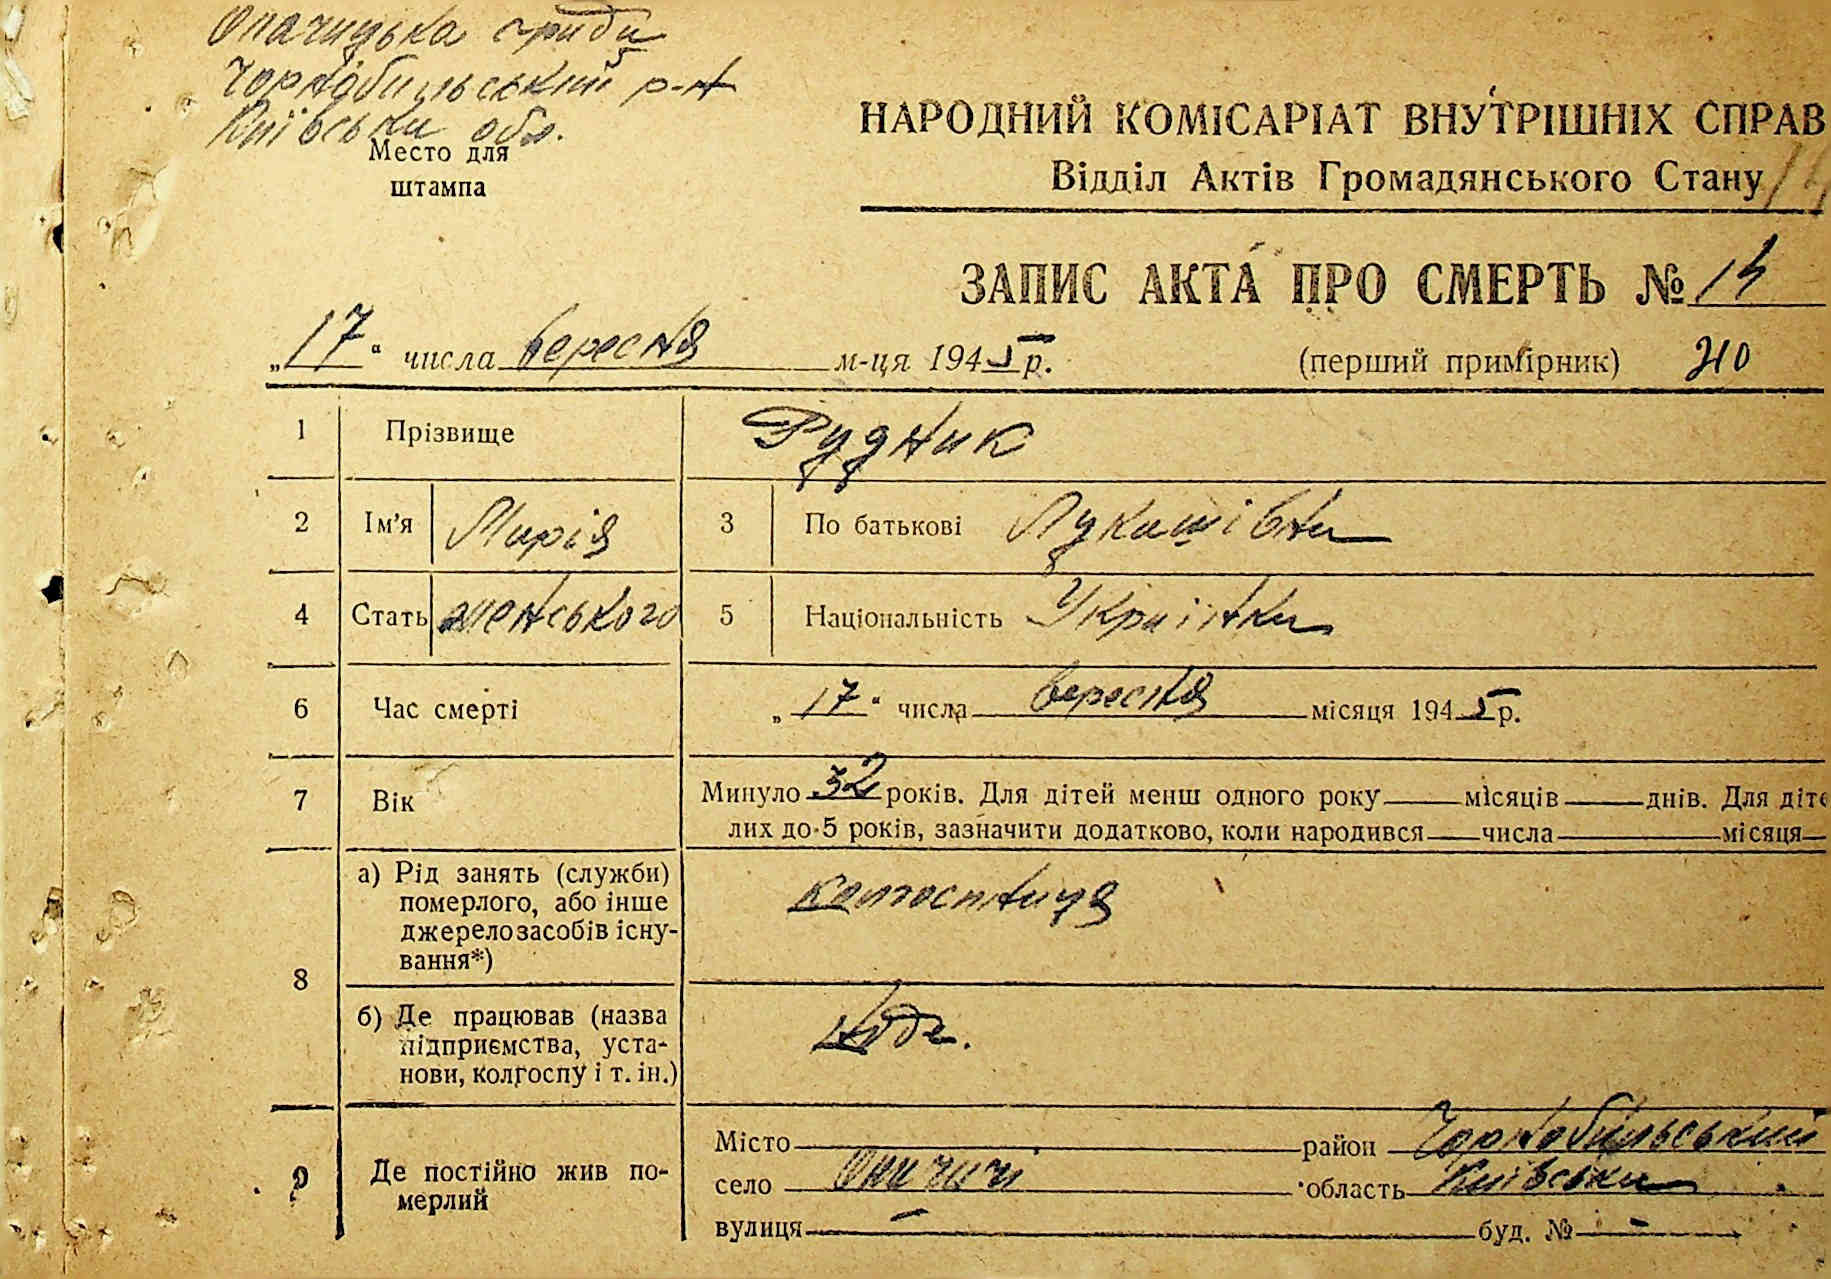 Опачицька с/рада
Чорнобильський р-н
Київська обл.
Место для
штампа
НАРОДНИЙ КОМІСАРІАТ ВНУТРІШНІХ СПРАВ
Відділ Актів Громадянського Стану
ЗАПИС АКТА ПРО СМЕРТЬ № 14
„17“ числа вересня м-ця 1945 р. (перший примірник)
1 Прізвище Рудник
2 Ім'я Марія 3 По батькові Лукашівна
4 Стать женського 5 Національність Українка
6 Час смерті „17“ числа вересня місяця 1945 р.
7 Вік Минуло 32 років. Для дітей менш одного року місяців днів. Для діте
лих до 5 років, зазначити додатково, коли народився числа місяця
8 а) Рід занять (служби) померлого, або інше джерело засобів існу-
вання*) колгоспниця
б) Де працював (назва
підприємства, уста-
нови, колгоспу і т. ін.)
9 Де постійно жив по-
мерлий
Місто район Чорнобильський
село Опачичі область Київська
вулиця – буд. № –